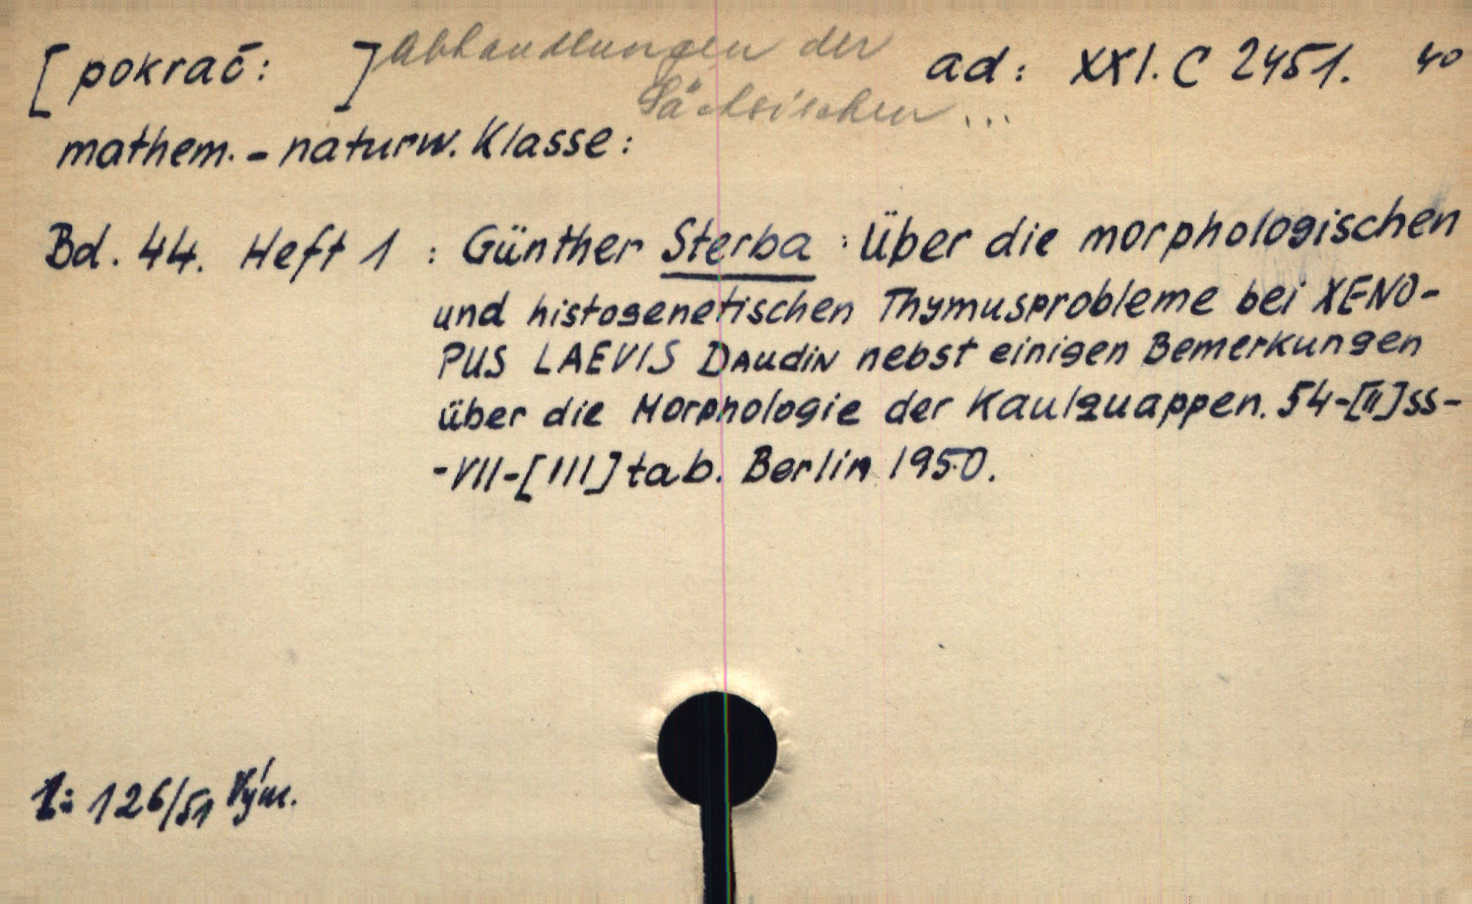 [pokrač: ] Abhandlungen der ad: XXI. C 2451. 40
Sächsischen ...
mathem. - naturw. Klasse:
Bd. 44. Heft 1 : Günther Sterba : Über die morphologischen
und histogenetischen Thymusprobleme bei XENO-
PUS LAEVIS DAudiN nebst einigen Bemerkungen
über die Morphologie der Kaulquappen. 54-[II]ss-
-VII-[III] tab. Berlin 1950.
1: 126/51 Vým.